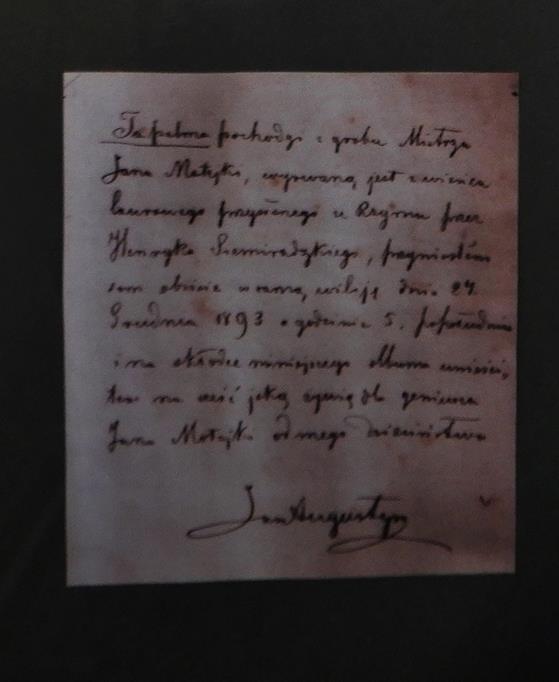 Ta palma pochodzi z grobu Mistrza
Jana Matejki, wyrwaną jest z wieńca
laurowego przysłanego z Rzymu przez
Henryka Siemiradzkiego, pragniąłem
sam obicie w samą wiliję dnia 24
Grudnia 1893 o godzinie 5. popołudniu
i na okładce niniejszego Albumu umieści,
tem na cześć jaką żywię dla geniusza
Jana Matejki od mego dzieciństwa
Jan Augustyn